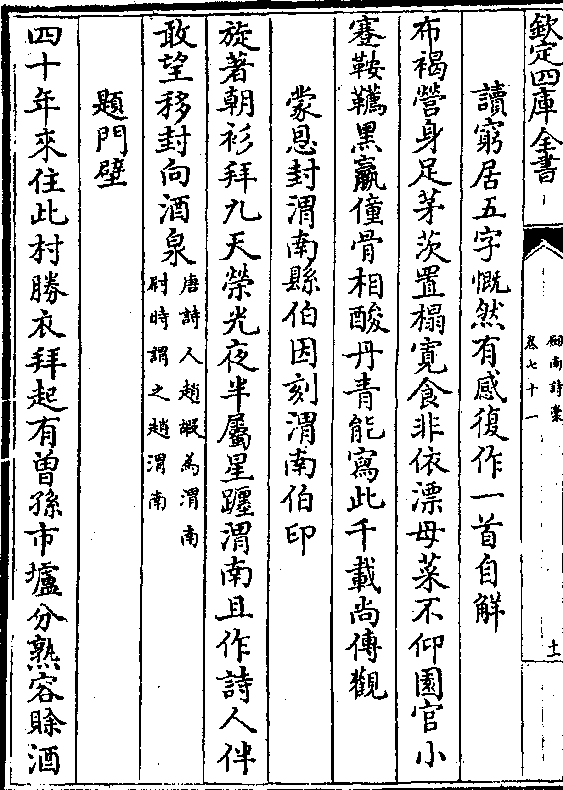 欽定四庫全書
劒南詩藁
卷七十一
十二
讀窮居五字慨然有感復作一首自解
布褐營身足茅茨置榻寛食非依漂母菜不仰園官小
蹇鞍韉黒羸僮骨相酸丹青能寫此千載尚傳觀
蒙恩封渭南縣伯因刻渭南伯印
旋著朝衫拜九天榮光夜半屬星躔渭南且作詩人伴
敢望移封向酒泉
唐詩人趙嘏為渭南
尉時謂之趙渭南
題門壁
四十年來住此村勝衣拜起有曽孫市壚分熟容賖酒